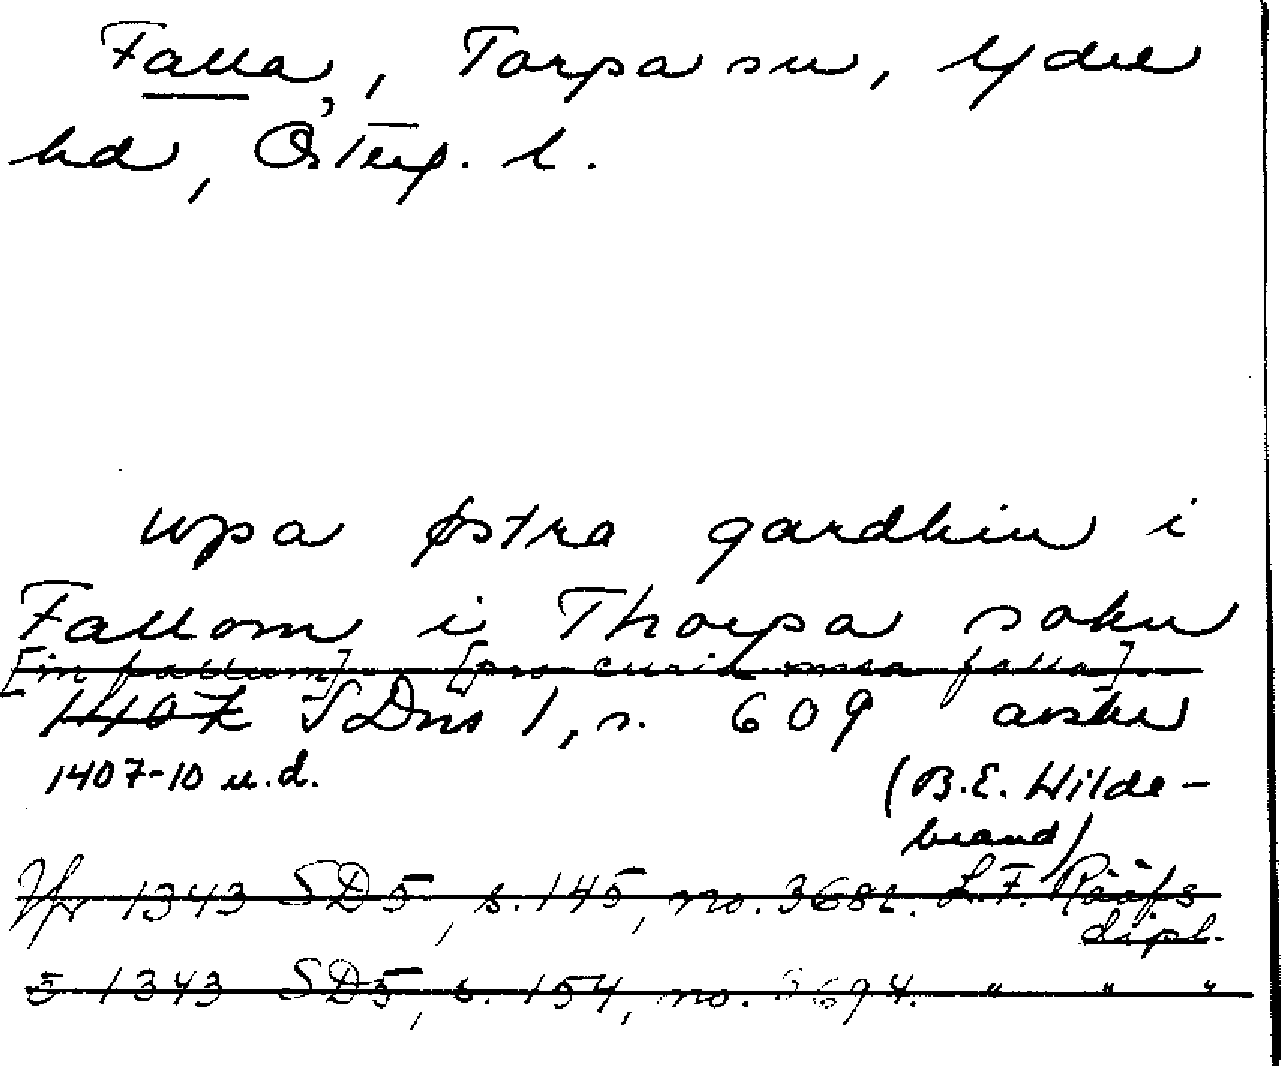 Falla, Torpa sn, Ydre
hd, Österg. l.
upa østra gardhin i
Fallom i Thorpa sokn
[in fallum] [pro curia mea falla]
1407 SDns 1, s. 609 avskr
1407-10 u.d. (B.E. Hilde-
brand)
Jfr 1343 SD 5, s. 145, no. 3682. L.F. Rääfs
dipl.
1343 SD 5, s. 154, no. 3694. " " "